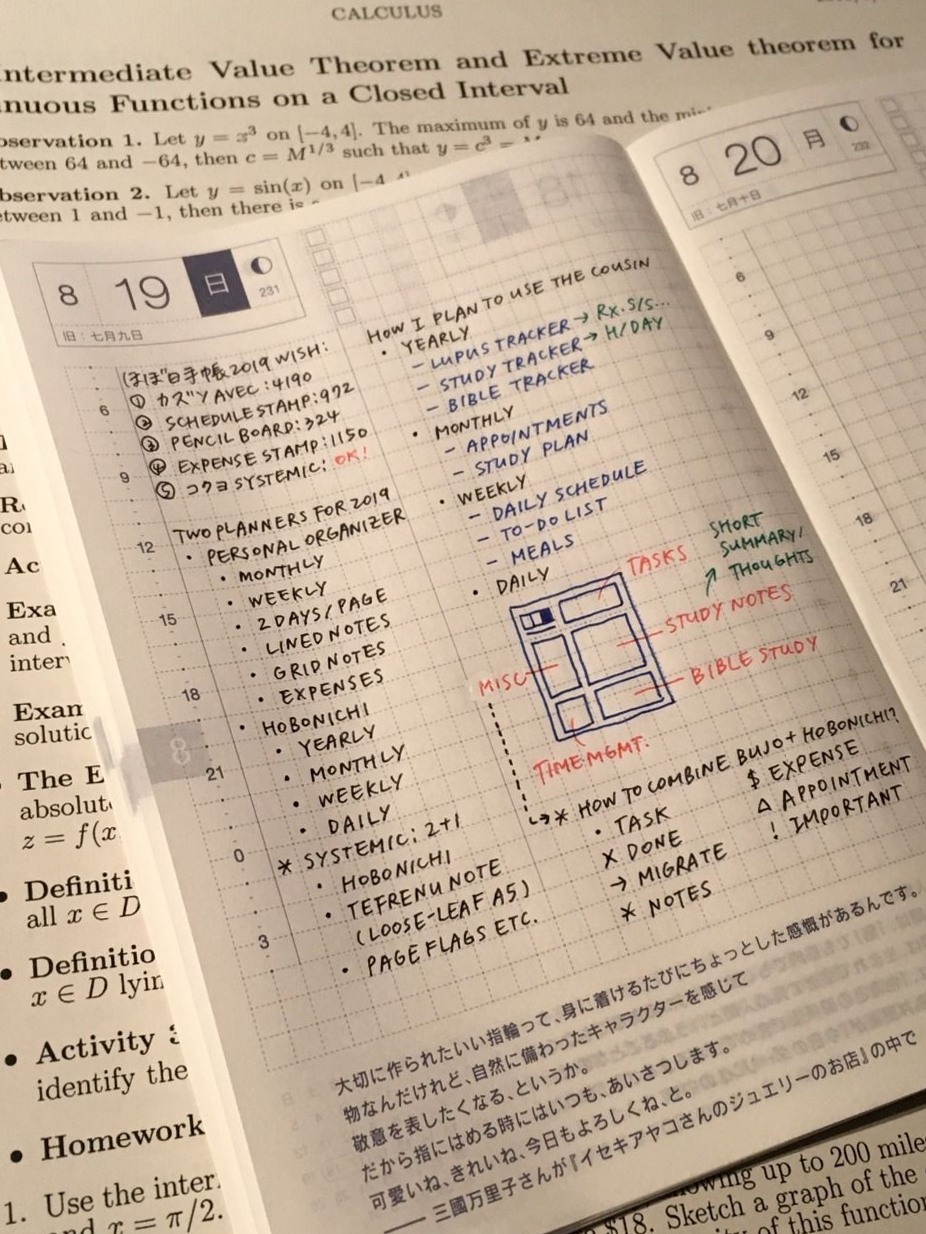 CALCULUS
Intermediate Value Theorem and Extreme Value theorem for
nuous Functions on a Closed Interval
bservation 1. Let y = x³ on [−4, 4]. The maximum of y is 64 and the
tween 64 and −64, then c = M^1/3 such that y = c³ =
bservation 2. Let y = sin(x) on [−4
etween 1 and −1, then there is
8 19 日
231
旧：七月九日
ほぼ日手帳 2019 WISH:
① カズン AVEC: 4190
② SCHEDULE STAMP: 972
③ PENCIL BOARD: 324
④ EXPENSE STAMP: 1150
⑤ コクヨ SYSTEMIC: OK!
TWO PLANNERS FOR 2019
• PERSONAL ORGANIZER
• MONTHLY
• WEEKLY
• 2 DAYS/PAGE
• LINED NOTES
• GRID NOTES
• EXPENSES
• HOBONICHI
• YEARLY
• MONTHLY
• WEEKLY
• DAILY
* SYSTEMIC: 2+1
• HOBONICHI
• TEFRENU NOTE
(LOOSE-LEAF A5)
• PAGE FLAGS ETC.
6
9
12
15
18
21
0
3
8
HOW I PLAN TO USE THE COUSIN
• YEARLY
- LUPUS TRACKER → RX. S/S...
- STUDY TRACKER → H/DAY
- BIBLE TRACKER
• MONTHLY
- APPOINTMENTS
- STUDY PLAN
• WEEKLY
- DAILY SCHEDULE
- TO-DO LIST
- MEALS
• DAILY
TASKS
SHORT
SUMMARY/
THOUGHTS
STUDY NOTES
MISC
BIBLE STUDY
TIME MGMT.
* HOW TO COMBINE BUJO + HOBONICHI?
• TASK
X DONE
→ MIGRATE
* NOTES
$ EXPENSE
△ APPOINTMENT
! IMPORTANT
大切に作られたいい指輪って、身に着けるたびにちょっとした感慨があるんです。
物なんだけれど、自然に備わったキャラクターを感じて
敬意を表したくなる、というか。
だから指にはめる時にはいつも、あいさつします。
可愛いね、きれいね、今日もよろしくね、と。
—— 三國万里子さんが『イセキアヤコさんのジュエリーのお店』の中で
8 20 月
232
旧：七月十日
6
9
12
15
18
21
Ac
Exa
and
inter
Exam
solutic
• The E
absolut
z = f(x
• Definiti
all x ∈ D
• Definitio
x ∈ D lyin
• Activity
identify the
• Homework
1. Use the inter
and x = π/2.
owing up to 200 mile
$18. Sketch a graph of the
ty of this function